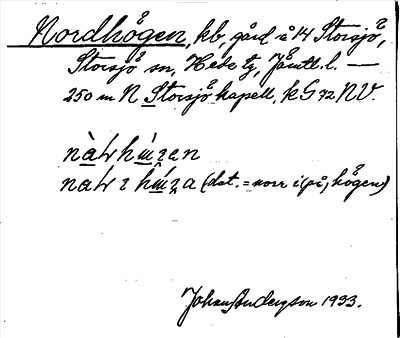 Nordhögen, kb, gård å 14 Storsjö,
Storsjö sn, Hede tg, Jämtl. l. —
250 m N Storsjö kapell, k G 72 NV.
(dat. = norr i (på) högen)
Johan Anderson 1933.